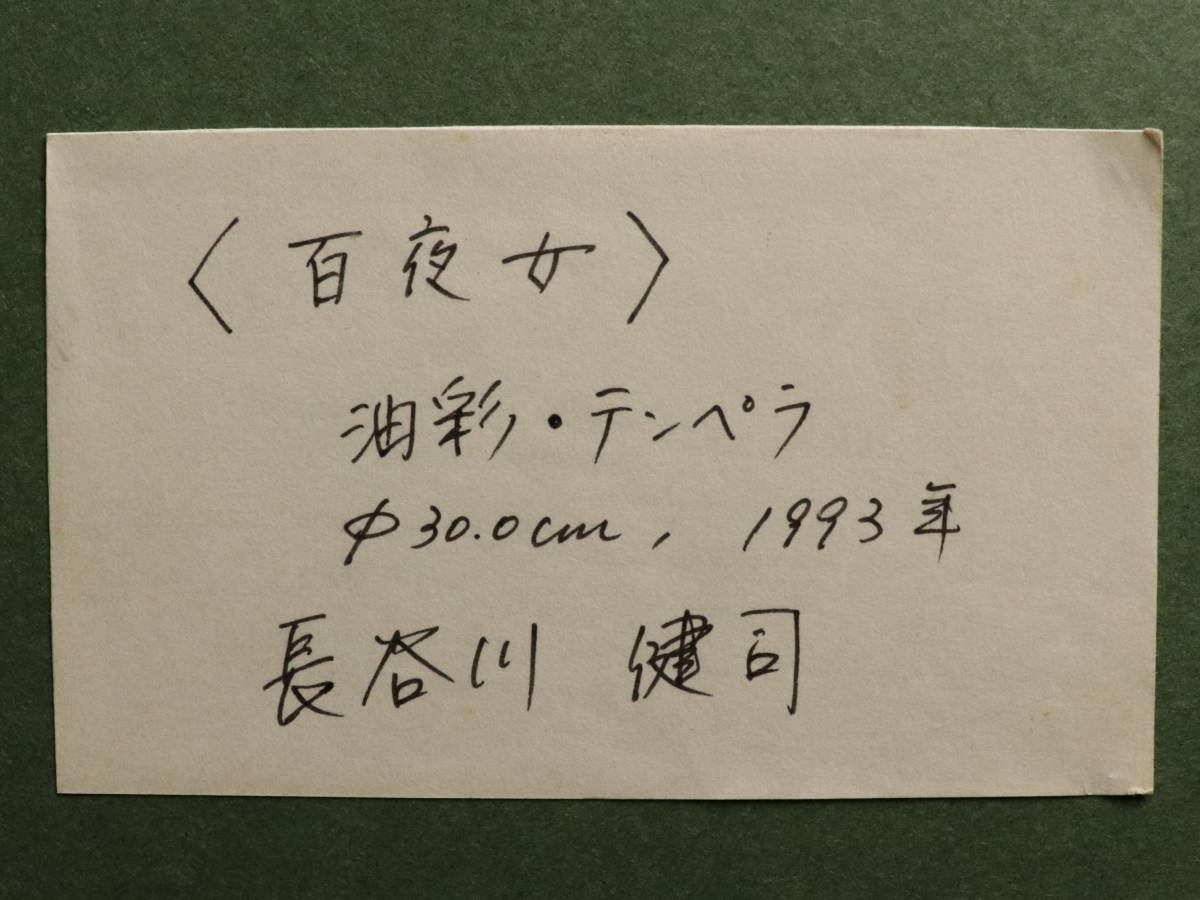 〈百夜女〉
油彩・テンペラ
φ30.0cm, 1993年
長谷川 健司